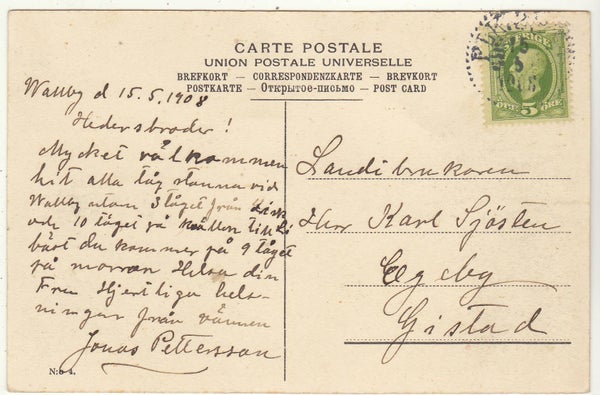 CARTE POSTALE
UNION POSTALE UNIVERSELLE
BREFKORT — CORRESPONDENZKARTE — BREVKORT
POSTKARTE — Открытое-письмо — POST CARD
5
ÖRE 5 ÖRE
Wallby d 15.5.1908
Hedersbroder!
Mycket välkommen
hit alla tåg stanna vid
Wallby utom 3 tåget från
och 10 tåget på kvällen till
bäst du kommer på 9 tåget
på morran Helsa din
Fru Hjertliga hels-
ningar från vännen
Jonas Pettersson
Landtbrukaren
Herr Karl Sjösten
Egeby
Gistad
N:o 4.